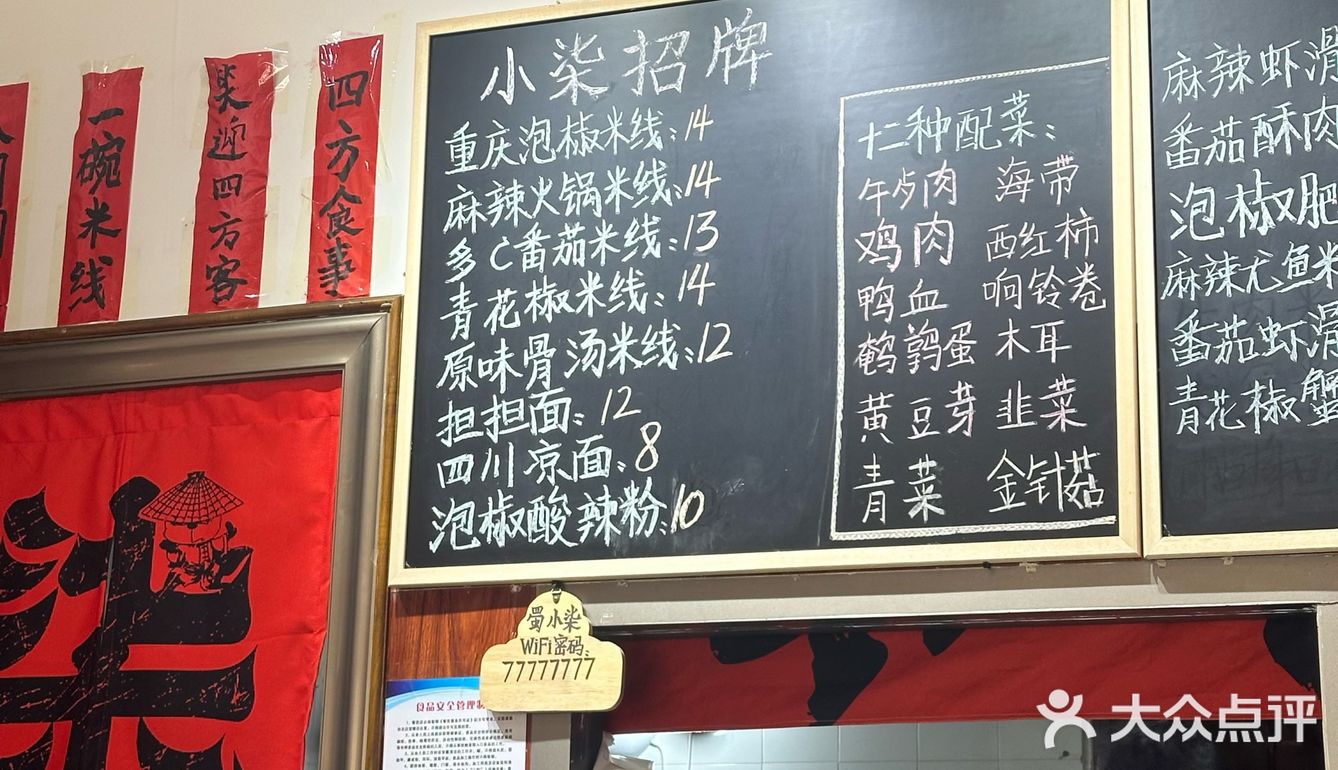 四方食事
笑迎四方客
一碗米线
小柒招牌
重庆泡椒米线:14
麻辣火锅米线:14
多C番茄米线:13
青花椒米线:14
原味骨汤米线:12
担担面:12
四川凉面:8
泡椒酸辣粉:10
十二种配菜:
午歺肉 海带
鸡肉 西红柿
鸭血 响铃卷
鹌鹑蛋 木耳
黄豆芽 韭菜
青菜 金针菇
麻辣虾滑
番茄酥肉
泡椒肥
麻辣尤鱼米
番茄虾滑
青花椒蟹
柒
蜀小柒
WiFi密码:
77777777
食品安全管理制
大众点评